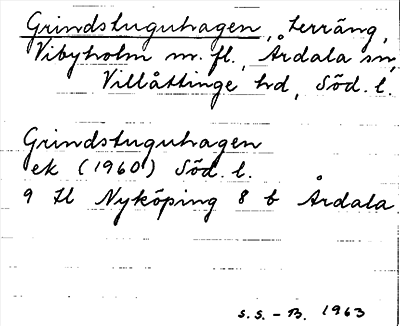 Grindstuguhagen, terräng,
Vibyholm m. fl., Årdala sn,
Villåttinge hd, Söd. l.
Grindstuguhagen
ek (1960) Söd. l.
9 H Nyköping 8 b Årdala
S.S. - B. 1963